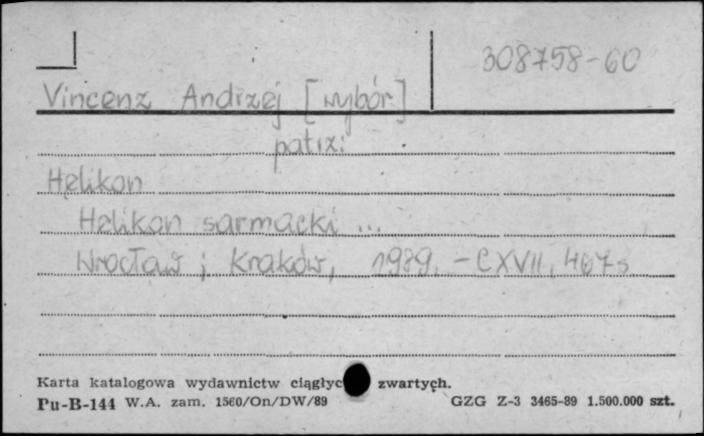 308758-60
Vincenz Andrzej [wybór]
patrz:
Helikon
Helikon sarmacki ...
Wrocław ; Kraków, 1989. - CXVII, 467 s
Karta katalogowa wydawnictw ciągłyc zwartych.
Pu-B-144 W.A. zam. 1560/On/DW/89 GZG Z-3 3465-89 1.500.000 szt.